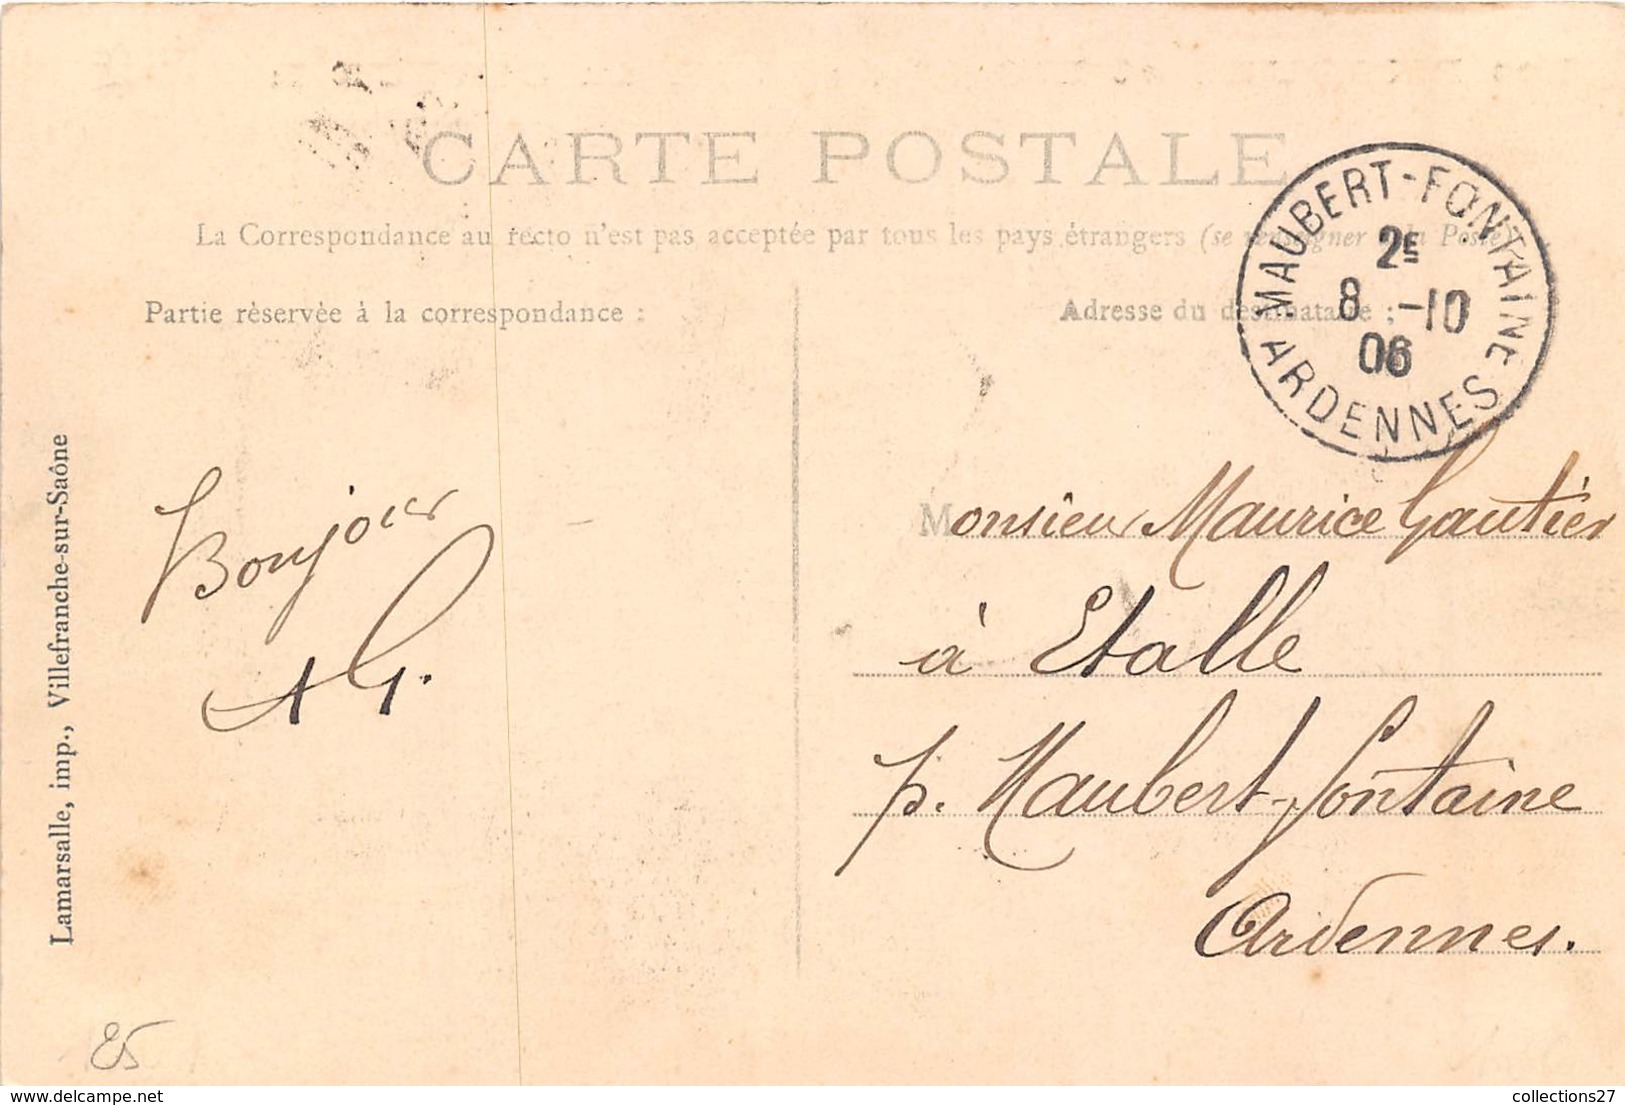 CARTE POSTALE
La Correspondance au recto n'est pas acceptée par tous les pays étrangers (se renseigner à la Poste)
Partie réservée à la correspondance :
Adresse du destinataire ;
MAUBERT-FONTAINE
2E
8 -10
06
ARDENNES
Bonjour
AG.
Monsieur Maurice Gautier
à Etalle
p. Maubert-fontaine
Ardennes.
Lamarsalle, imp., Villefranche-sur-Saône
25
www.delcampe.net
collections27